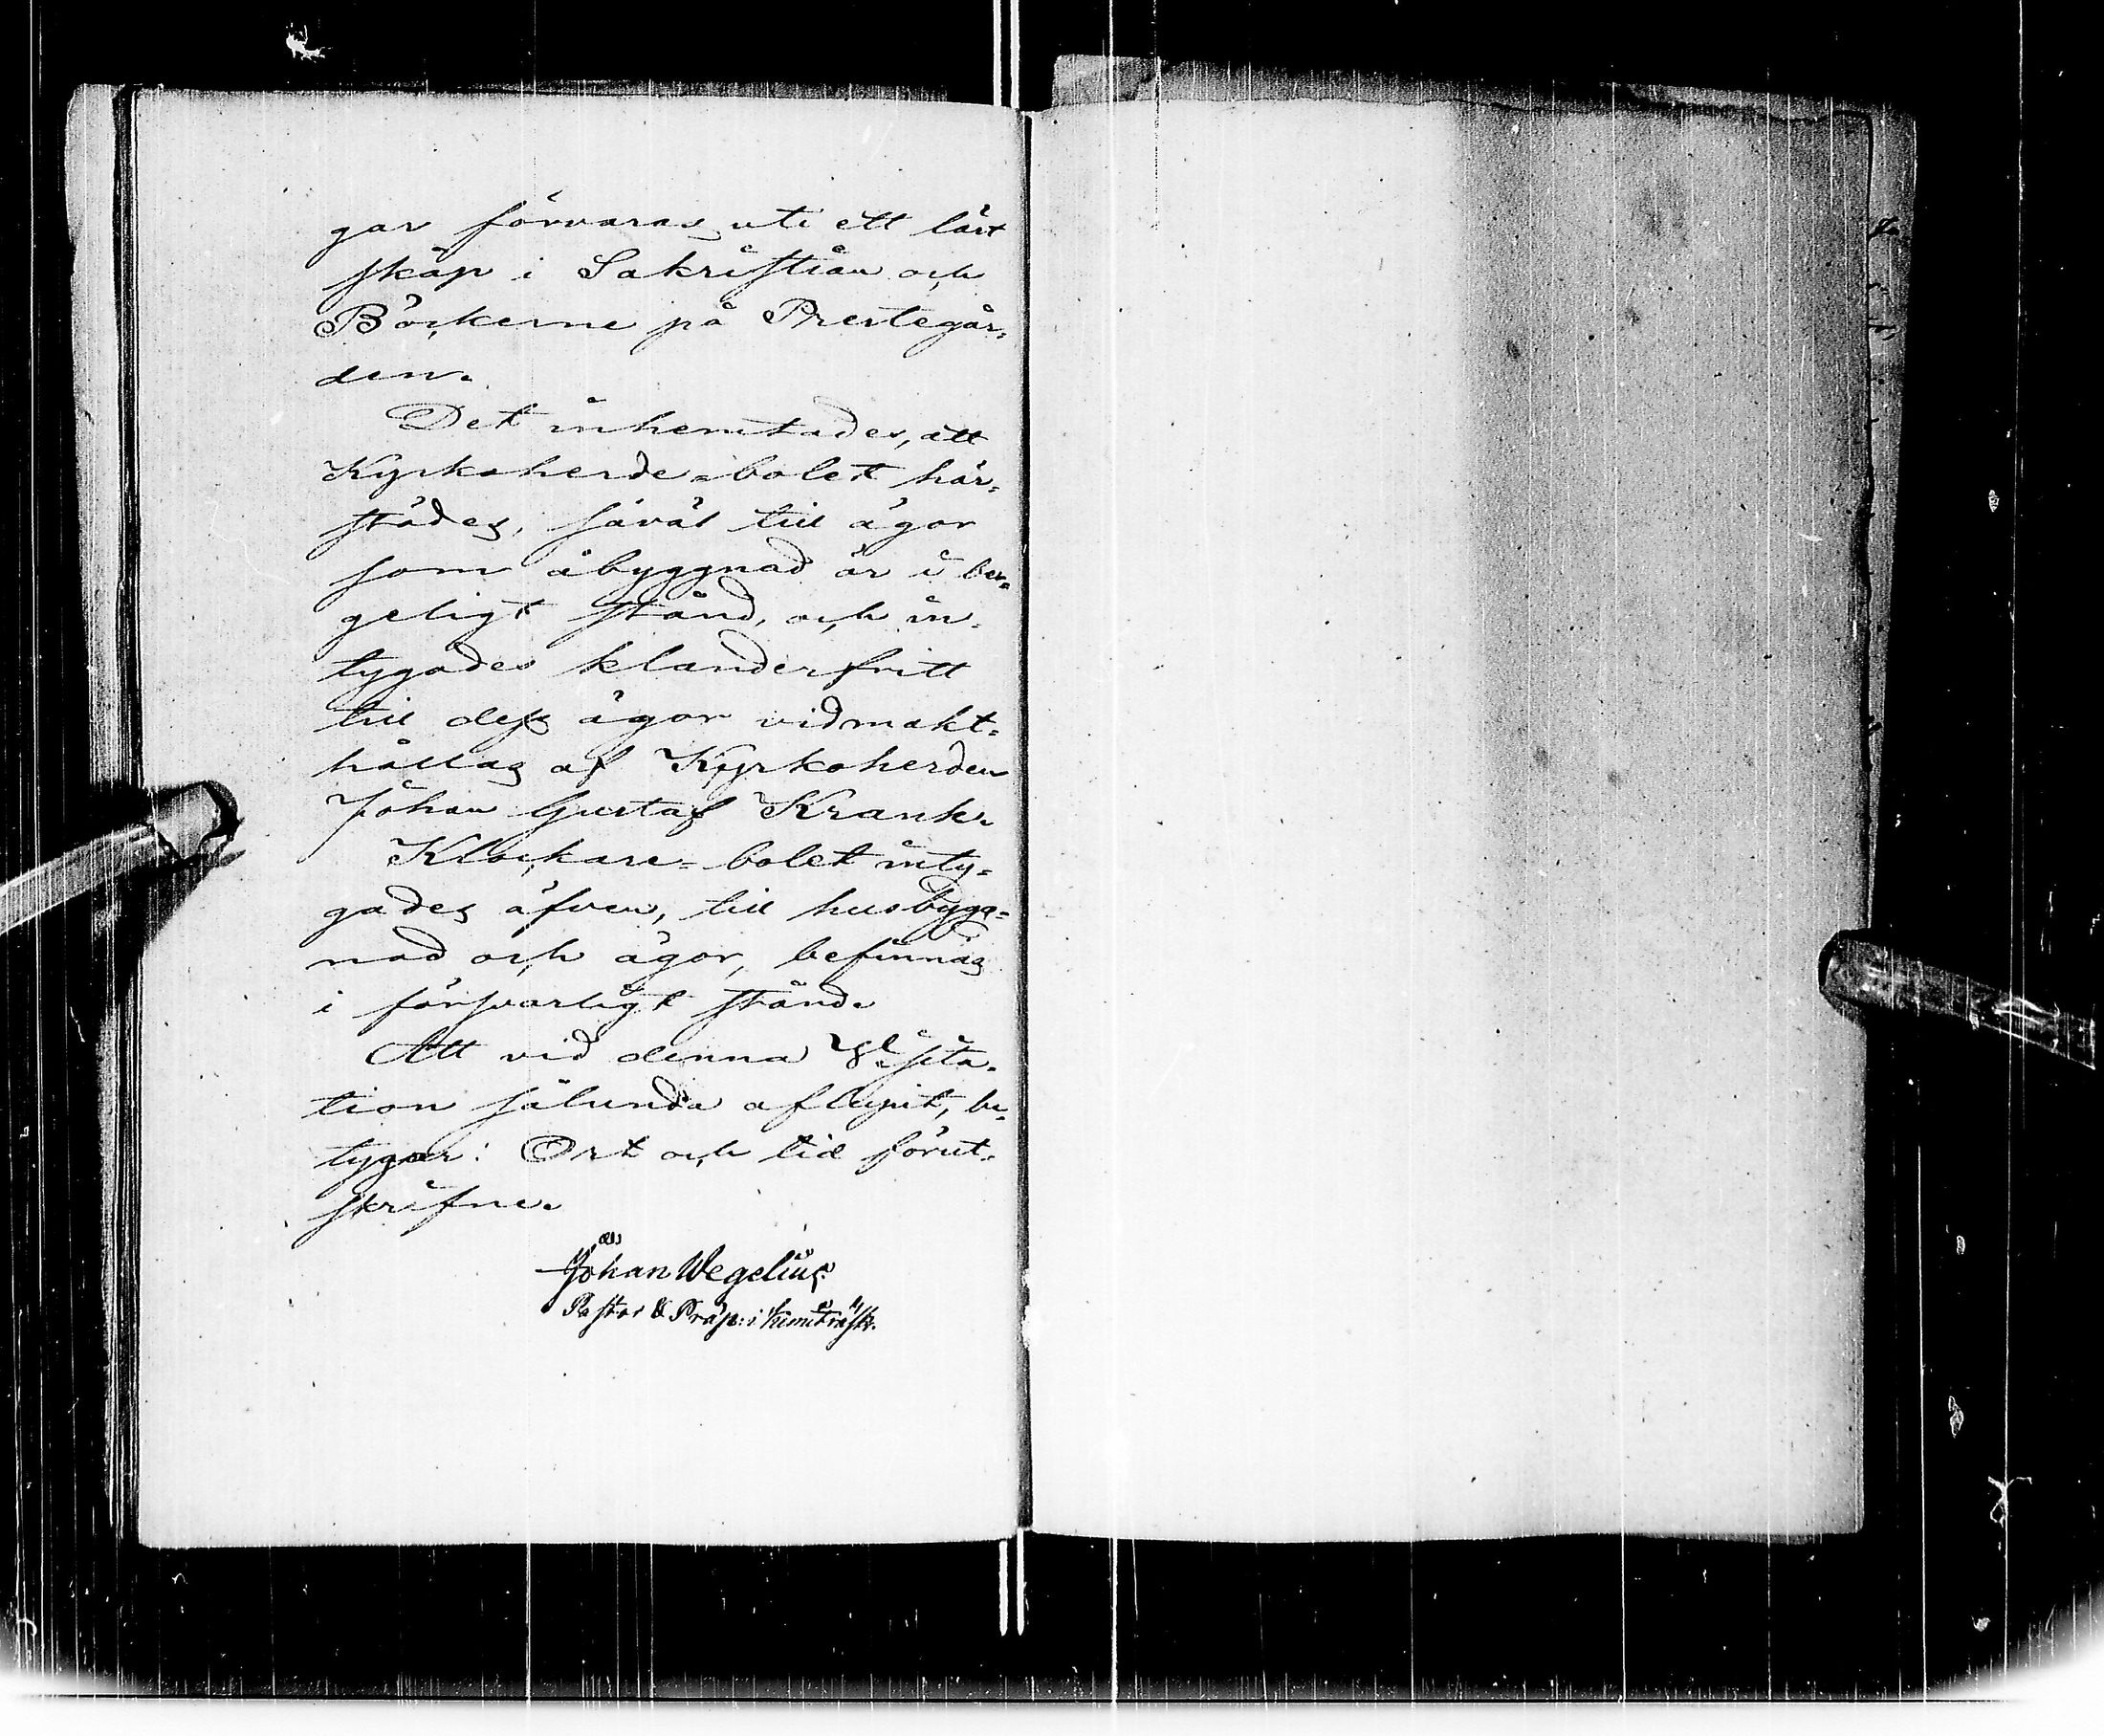 gar förvaras uti ett låst
skåp i Sakristian och
Böckerne på Prestegår-
den.
Det inhemtades, att
Kyrkoherde-bolet här-
städes, såväl till ägor
som åbyggnad är i bör-
geligt stånd, och in-
tygades klanderfritt
till dess ägor vidmakt-
hållas af Kyrkoherden
Johan Gustaf Krank.
Klockare-bolet inty-
gades äfven, till husbygg-
nad och ägor, befinnas
i försvarligt stånd.
Att vid denna Visita-
tion sålunda aflupit, be-
tygar: Ort och tid förut-
skrifne.
Johan Wegelius
Pastor & Präp: i Kemiträsk.